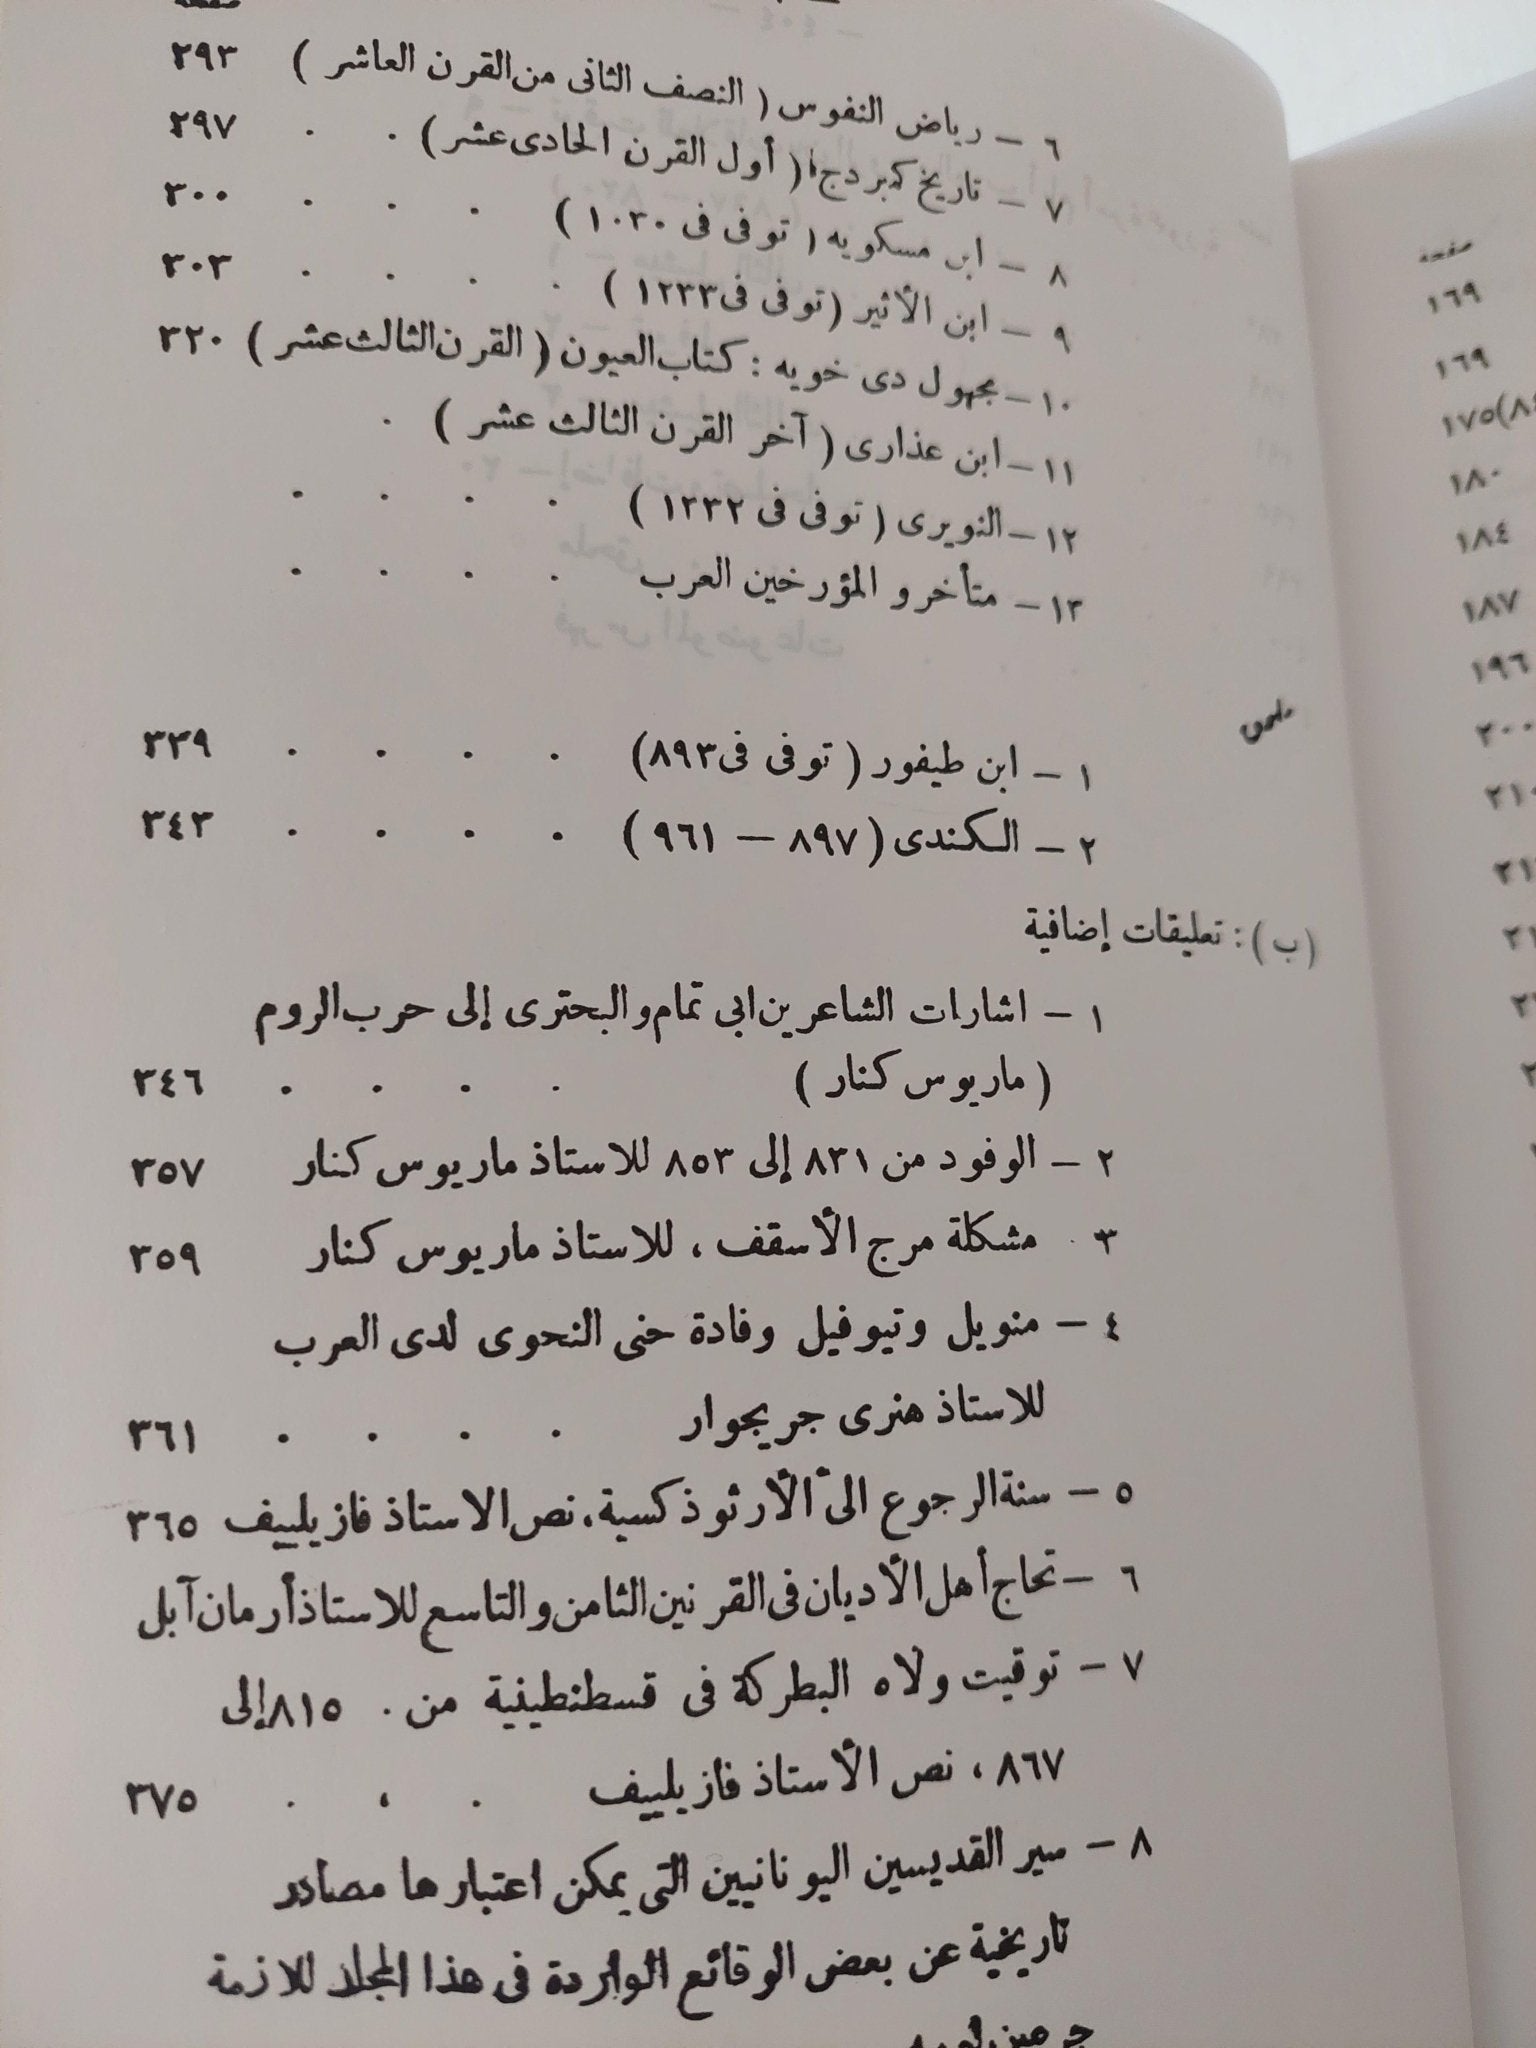 صفحة
٦ – رياض النفوس ( النصف الثانى من القرن العاشر ) ٢٩٣
٧ – تاريخ كمبردج ( أول القرن الحادى عشر ) . . ٢٩٧
٨ – ابن مسكويه ( توفى فى ١٠٣٠ ) . . . ٣٠٠
٩ – ابن الأثير ( توفى فى ١٢٣٣ ) . . . . ٣٠٣
١٠ – مجهول دى خويه : كتاب العيون ( القرن الثالث عشر ) ٣٢٠
١١ – ابن عذارى ( آخر القرن الثالث عشر ) .
١٢ – النويرى ( توفى فى ١٢٣٢ ) . . . .
١٣ – متأخرو المؤرخين العرب . . . .
ملحق
١ – ابن طيفور ( توفى فى ٨٩٣) . . . . ٣٣٩
٢ – الكندى ( ٨٩٧ – ٩٦١ ) . . . . ٣٤٣
(ب) : تعليقات إضافية
١ – اشارات الشاعرين ابى تمام والبحترى إلى حرب الروم
( ماريوس كنار ) . . . . ٣٤٦
٢ – الوفود من ٨٣١ إلى ٨٥٣ للاستاذ ماريوس كنار ٣٥٧
٣ . مشكلة مرج الأسقف ، للاستاذ ماريوس كنار ٣٥٩
٤ – منويل وتيوفيل وفادة حنى النحوى لدى العرب
للاستاذ هنرى جريجوار . . . . ٣٦١
٥ – سنة الرجوع الى الأرثوذكسية، نص الاستاذ فازيلييف ٣٦٥
٦ – تحاج أهل الأديان فى القرنين الثامن والتاسع للاستاذ أرمان آبل
٧ – توقيت ولاه البطركة فى قسطنطينية من . ٨١٥ إلى
٨٦٧ ، نص الأستاذ فازيلييف . ، . ٣٧٥
٨ – سير القديسين اليونانيين التى يمكن اعتبارها مصادر
تاريخية عن بعض الوقائع الواردة فى هذا المجلد للازمة
صفحة
١٦٩
١٦٩
١٧٥
١٨٠
١٨٤
١٨٧
١٩٦
٢٠٠